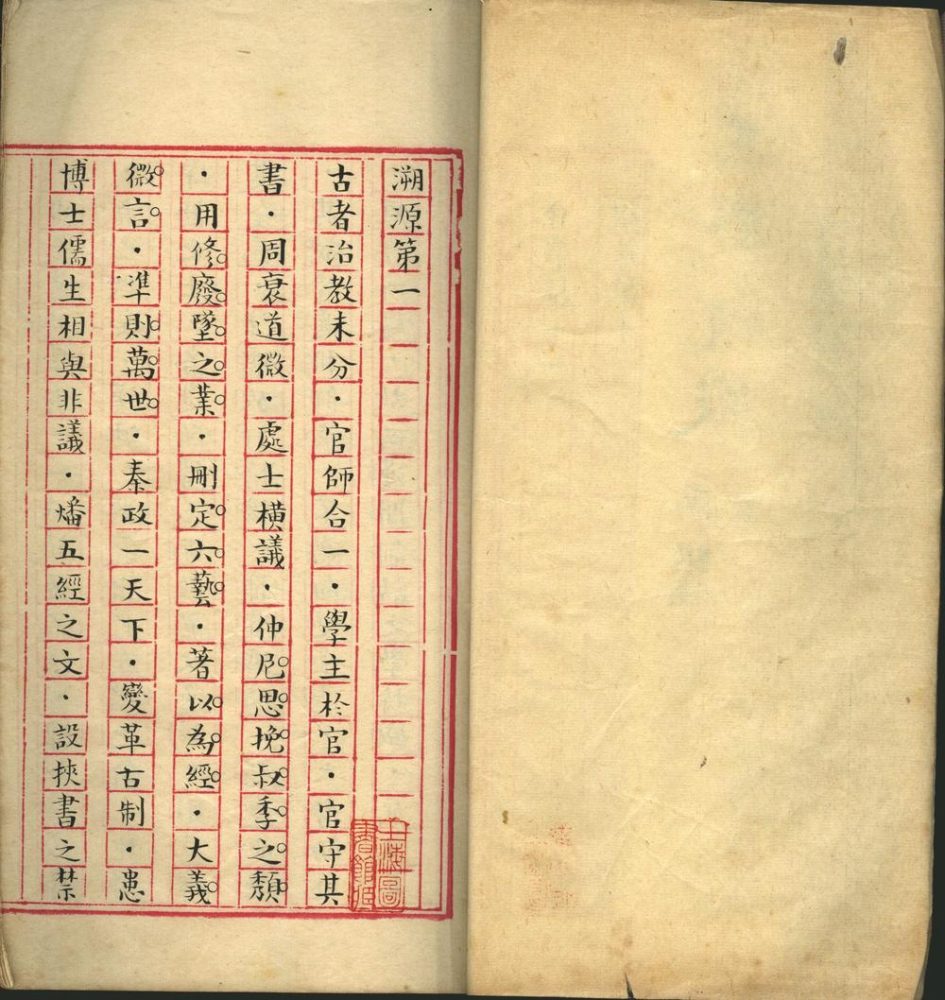 溯源第一
古者治教未分・官師合一・學主於官・官守其
書・周衰道微・處士橫議・仲尼思挽叔季之頹
・用修廢墜之業・刪定六藝・著以為經・大義
微言・準則萬世・秦政一天下・變革古制・患
博士儒生相與非議・燔五經之文・設挾書之禁
上海圖
書館藏